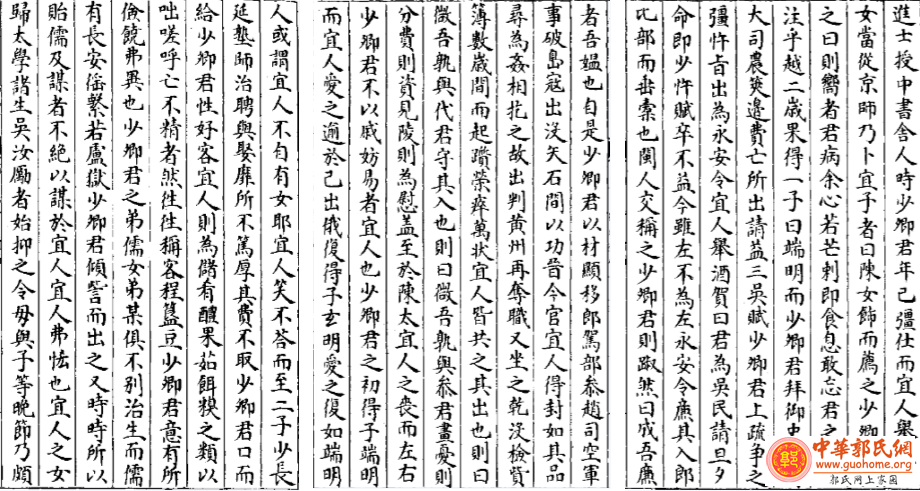 進士授中書舎人時少卿君年已彊仕而宜人舉
女當從京師乃卜宜子者曰陳女飾而薦之少卿
之曰則嚮者君病余心若芒刺即食息敢忘君之
注乎越二歲果得一子曰端明而少卿君拜御史
大司農筴邊費亡所出請益三吳賦少卿君上疏爭之
彊忤旨出為永安令宜人舉酒賀曰君為吳民請旦夕
命即少忤賦卒不益今雖左不為左永安令廉其入郎
比部而垂橐也閩人交稱之少卿君則踧然曰成吾廉
者吾媪也自是少卿君以材顯移郎駕部叅趙司空軍
事破島寇出没矢石間以功晉今官宜人得封如其品
尋為姦相扎之故出判黄州再奪職又坐之乾没檢覧
簿數歲間而起躓榮瘁萬狀宜人皆共之其出也則曰
微吾孰與代君守其入也則曰微吾孰與叅君畫憂則
分費則資見陵則為慰盖至於陳太宜人之喪而左右
少卿君不以戚妨易者宜人也少卿君之初得子端明
而宜人愛之逾於己出俄復得子玄明愛之復如端明
人或謂宜人不自有女耶宜人笑不答而至二子少長
延塾師治聘與娶靡所不篤厚其費不取少卿君口而
給少卿君性好客宜人則為儲肴醲果茹餌糗之類以
咄嗟呼亡不精者然徃徃稱客程簋豆少卿君意有所
儉饒弗異也少卿君之弟儒女弟某俱不别治生而儒
有長安徭繫若盧獄少卿君傾訾而出之又時時所以
貽儒及謀者不絶以謀於宜人宜人弗恡也宜人之女
歸太學諸生吳汝勵者始抑之令毋與子等晩節乃頗
中華郭氏網
www.guohome.org
郭氏网上家園